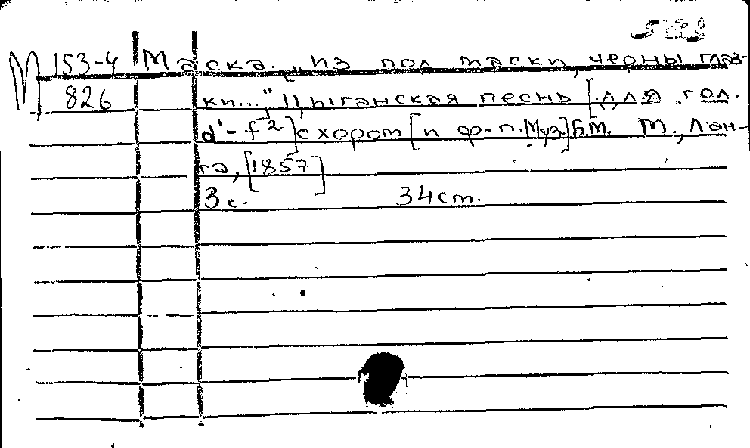 М 153-4 Маска. „Из под маски, черны глаз-
826 ки...", Цыганская песнь [для гол.
d'-f²] с хором [и ф-п. Муз.] Б.М. М., Лан-
га, [1857]
3 с. 34 см.